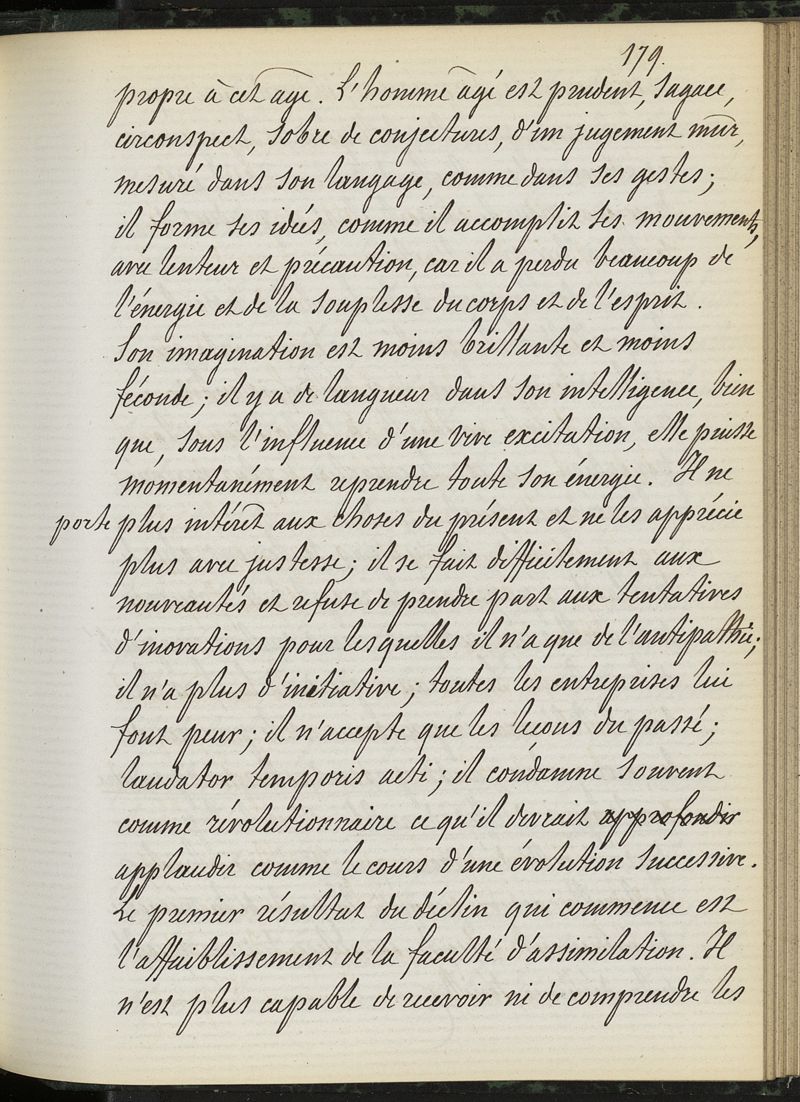 179.
propre à cet âge. L'homme âgé est prudent, sagace,
circonspect, sobre de conjectures, d'un jugement mûr,
mesuré dans son langage, comme dans ses gestes;
il forme ses idées, comme il accomplit ses mouvements,
avec lenteur et précaution, car il a perdu beaucoup de
l'énergie et de la souplesse du corps et de l'esprit.
Son imagination est moins brillante et moins
féconde; il y a de langueur dans son intelligence, bien
que, sous l'influence d'une vive excitation, elle puisse
momentanément reprendre toute son énergie. Il ne
porte plus intérêt aux choses du présent et ne les apprécie
plus avec justesse; il se fait difficitement aux
nouveautés et refuse de prendre part aux tentatives
d'inovations pour lesquelles il n'a que de l'antipathie;
il n'a plus d'initiative; toutes les entreprises lui
font peur; il n'accepte que les lecons du passé;
laudator temporis acti; il condamne souvent
comme révolutionnaire ce qu'il devrait approfondir
applaudir comme le cours d'une évolution successive.
Le premier résultat du déclin qui commence est
l'affaiblissement de la faculté d'assimilation. Il
n'est plus capable de recevoir ni de comprendre les